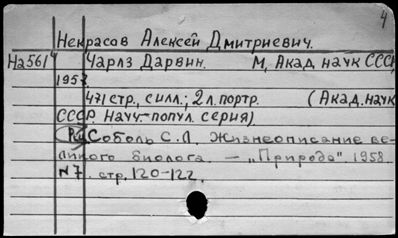 4
Некрасов Алексей Дмитриевич.
На5614 Чарлз Дарвин. М, Акад. наук СССР,
1957
471 стр., с илл.; 2 л. портр. (Акад. наук
СССР. Науч.-попул. серия)
Рец. Соболь С.Л. Жизнеописание ве-
ликого биолога. — „Природа" 1958
N7. стр. 120-122.